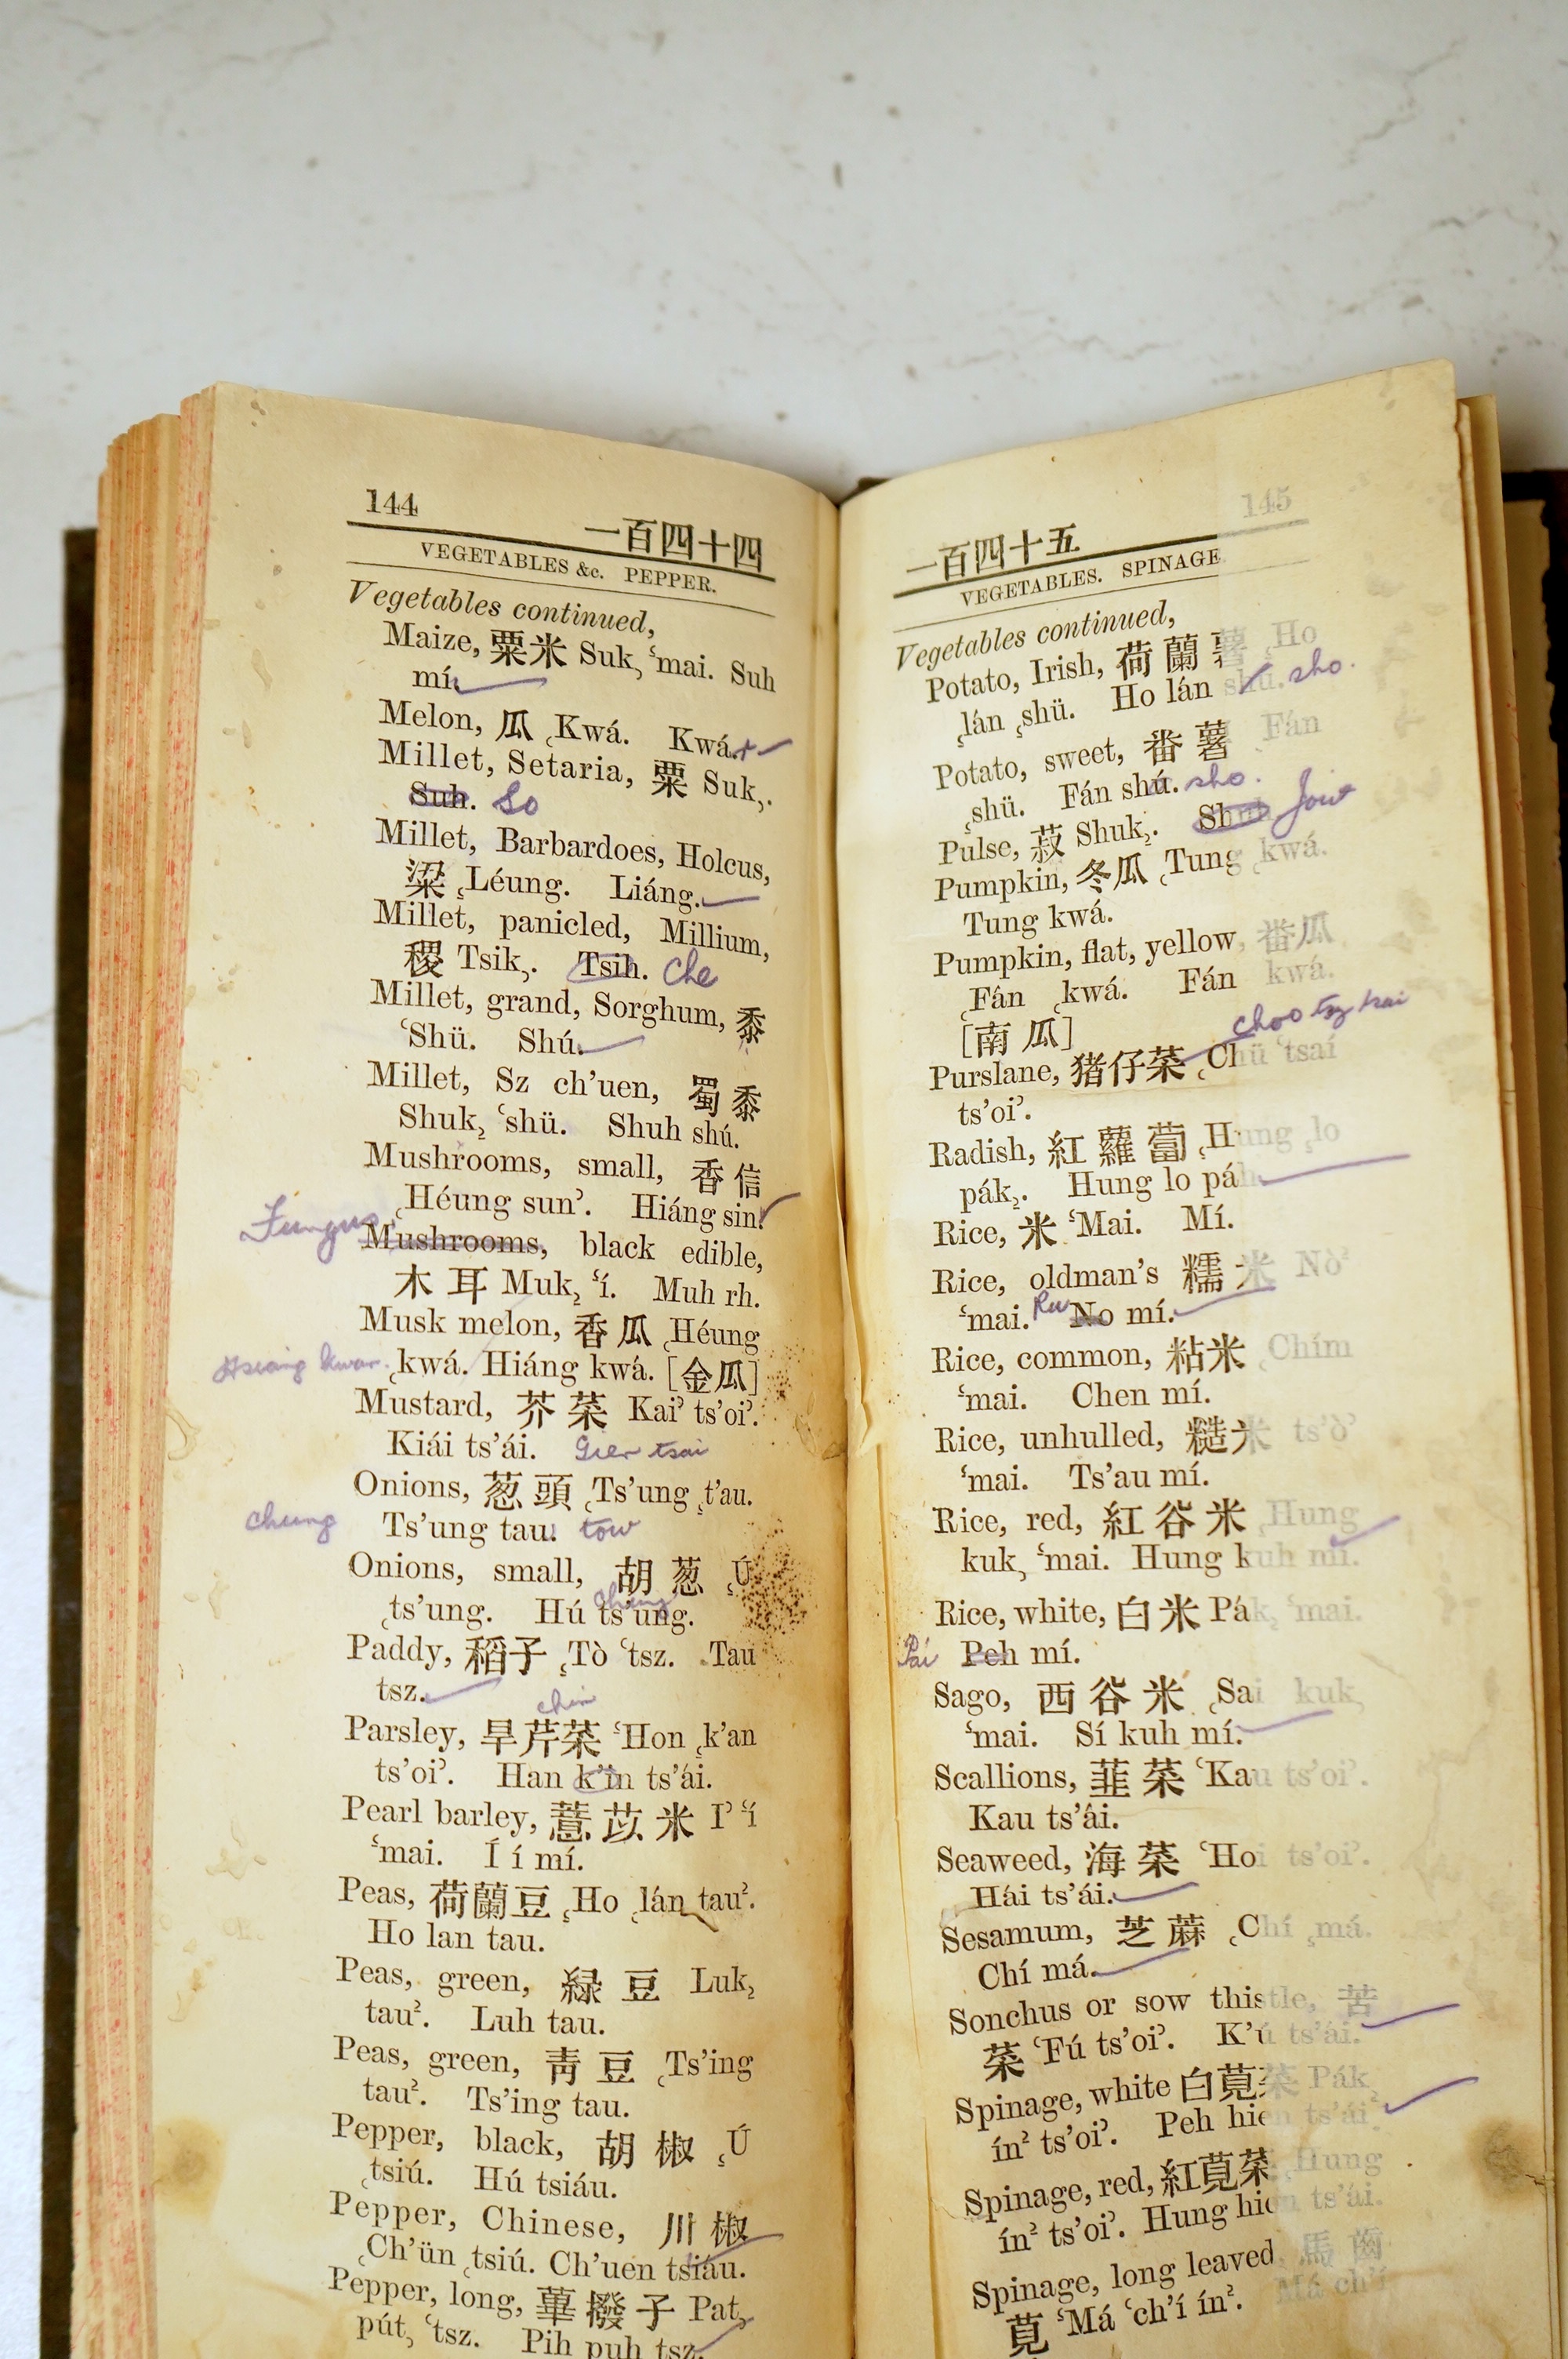 144
一百四十四
VEGETABLES &c. PEPPER.
Vegetables continued,
Maize, 粟米 Suk꜆ ꜂mai. Suh
mí.
Melon, 瓜 ꜀Kwá. Kwá.
Millet, Setaria, 粟 Suk꜆.
Suh. So
Millet, Barbardoes, Holcus,
粱 ꜁Léung. Liáng.
Millet, panicled, Millium,
稷 Tsik꜆. Tsih. Che
Millet, grand, Sorghum, 黍
꜂Shü. Shú.
Millet, Sz ch’uen, 蜀黍
Shuk꜇ ꜂shü. Shuh shú.
Mushrooms, small, 香信
꜀Héung sun꜄. Hiáng sin.
Fungus
Mushrooms, black edible,
木耳 Muk꜇ ꜃í. Muh rh.
Musk melon, 香瓜 ꜀Héung
Hsiang kwar. ꜀kwá. Hiáng kwá. [金瓜]
Mustard, 芥菜 Kai꜄ ts’oi꜄.
Kiái ts’ái. Gier tsai
Onions, 葱頭 ꜀Ts’ung ꜁t’au.
chung Ts’ung tau. tow
Onions, small, 胡葱 ꜁Ú
꜀ts’ung. Hú ts’ung. chung
Paddy, 稻子 ꜁Tò ꜂tsz. Tau
tsz.
chin
Parsley, 旱芹菜 ꜂Hon ꜁k’an
ts’oi꜄. Han k’in ts’ái.
Pearl barley, 薏苡米 I꜄ ꜃í
꜃mai. Í í mí.
Peas, 荷蘭豆 ꜁Ho ꜁lán tau꜅.
Ho lan tau.
Peas, green, 緑豆 Luk꜇
tau꜅. Luh tau.
Peas, green, 靑豆 ꜀Ts’ing
tau꜅. Ts’ing tau.
Pepper, black, 胡椒 ꜁Ú
꜀tsiú. Hú tsiáu.
Pepper, Chinese, 川椒
꜀Ch’ün ꜀tsiú. Ch’uen tsiáu.
Pepper, long, 蓽撥子 Pat꜆
pút꜆ ꜂tsz. Pih puh tsz.
145
一百四十五
VEGETABLES. SPINAGE
Vegetables continued,
Potato, Irish, 荷蘭薯 ꜁Ho
꜁lán ꜁shü. Ho lán shú. sho.
Potato, sweet, 番薯 ꜀Fán
꜁shü. Fán shú. sho.
Pulse, 菽 Shuk꜇. Shuh Jow
Pumpkin, 冬瓜 ꜀Tung ꜀kwá.
Tung kwá.
Pumpkin, flat, yellow, 番瓜
꜀Fán ꜀kwá. Fán kwá.
[南瓜]
choo tsz tsai
Purslane, 猪仔菜 ꜀Chü ꜂tsaí
ts’oi꜄.
Radish, 紅蘿蔔 ꜁Hung ꜁lo
pák꜇. Hung lo páh.
Rice, 米 ꜃Mai. Mí.
Rice, oldman’s 糯米 Nò꜅
꜃mai. Ru No mí.
Rice, common, 粘米 ꜀Chím
꜃mai. Chen mí.
Rice, unhulled, 糙米 ts’ò꜄
꜃mai. Ts’au mí.
Rice, red, 紅谷米 ꜁Hung
kuk꜆ ꜃mai. Hung kuh mí.
Rice, white, 白米 Pák꜇ ꜃mai.
Pai Peh mí.
Sago, 西谷米 ꜀Sai kuk꜆
꜃mai. Sí kuh mí.
Scallions, 韮菜 ꜂Kau ts’oi꜄.
Kau ts’ái.
Seaweed, 海菜 ꜂Hoi ts’oi꜄.
Hái ts’ái.
Sesamum, 芝蔴 ꜀Chí ꜁má.
Chí má.
Sonchus or sow thistle, 苦
菜 ꜂Fú ts’oi꜄. K’ú ts’ái.
Spinage, white 白莧菜 Pák꜇
ín꜅ ts’oi꜄. Peh hien ts’ái
Spinage, red, 紅莧菜 ꜁Hung
ín꜅ ts’oi꜄. Hung hien ts’ái.
Spinage, long leaved, 馬齒
莧 ꜃Má ꜂ch’í ín꜅. Má ch’í